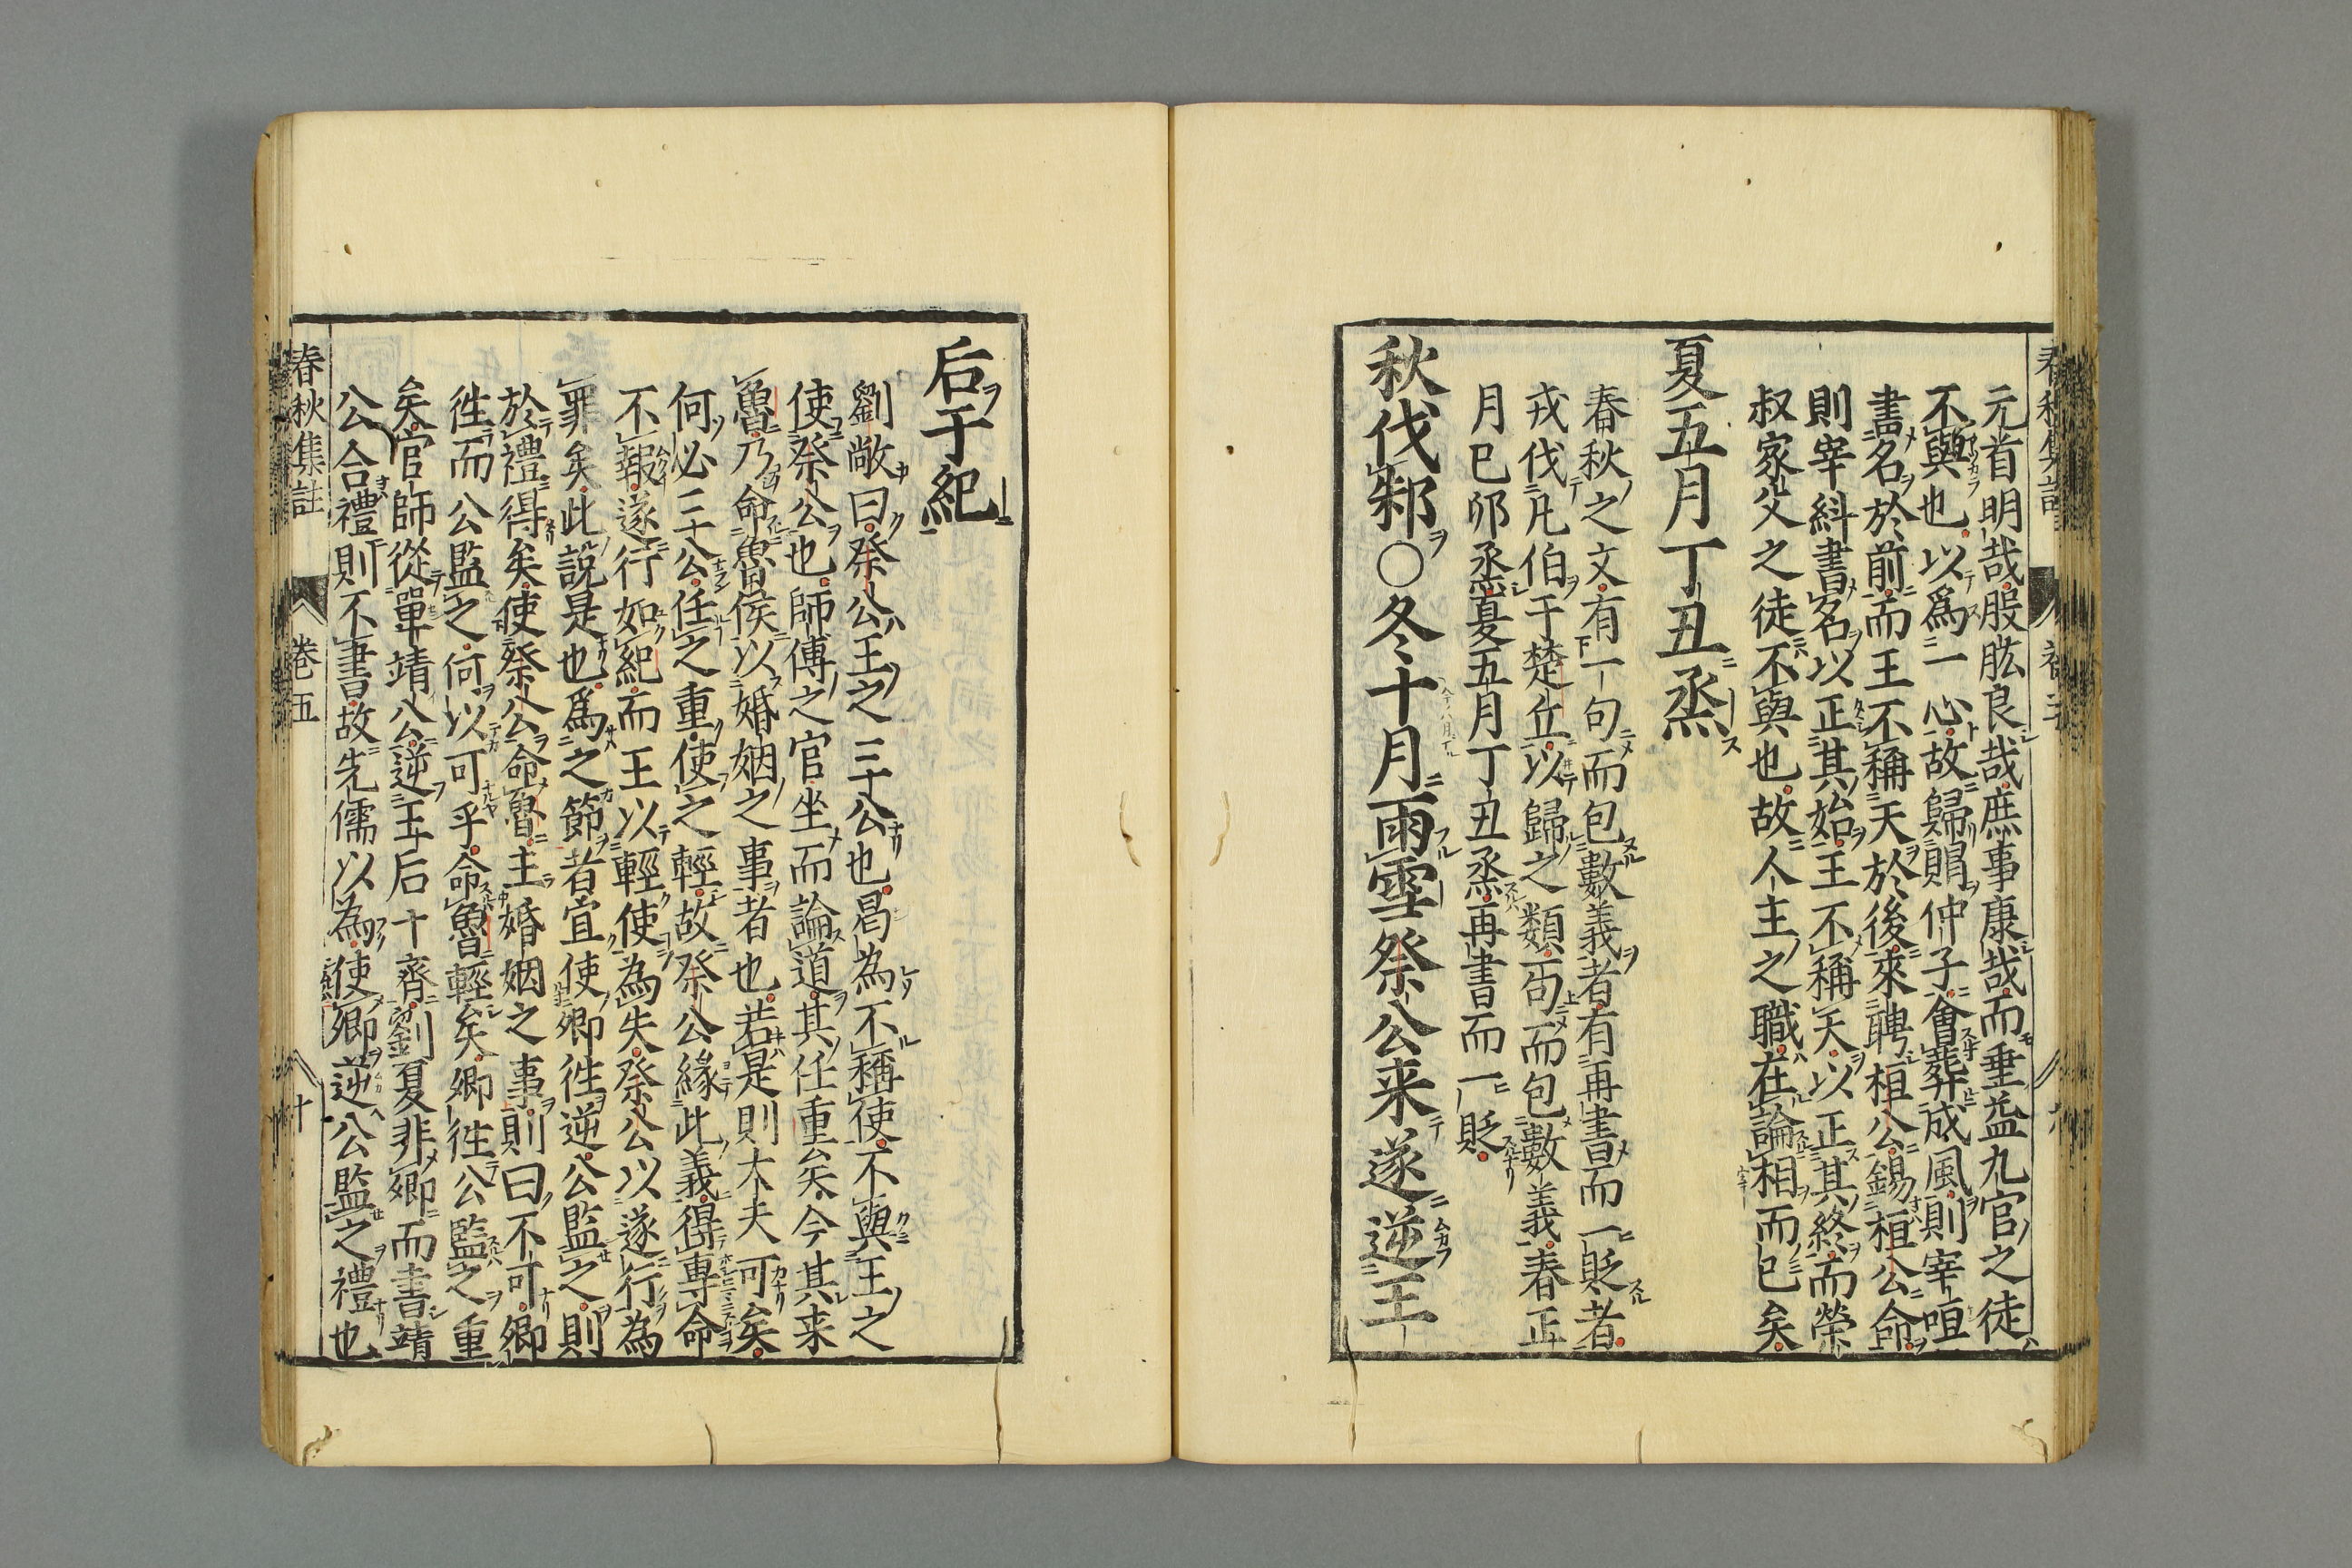 元首明哉股肱良哉庶事康哉而垂益九官之徒
不與也以爲一心故歸賵仲子會葬成風則宰咺
書名於前而王不稱天於後來聘桓公錫桓公命
則宰糾書名以正其始王不稱天以正其終而榮
叔家父之徒不與也故人主之職在論相而已矣
夏五月丁丑烝
春秋之文有一句而包數義者有再書而一貶者
戎伐凡伯于楚丘以歸之類一句而包數義春正
月己卯烝夏五月丁丑烝再書而一貶
秋伐邾○冬十月雨雪祭公来遂逆王
后于紀
劉敞曰祭公王之三公也曷為不稱使不與王之
使祭公也師傅之官坐而論道其任重矣今其来
魯乃命魯侯以婚姻之事者也若是則大夫可矣
何必三公任之重使之輕故祭公緣此義得專命
不報遂行如紀而王以輕使為失祭公以遂行為
罪矣此說是也爲之節者宜使卿徃逆公監之則
於禮得矣使祭公命魯主婚姻之事則曰不可卿
徃而公監之何以可乎命魯輕矣卿徃公監之重
矣官師從單靖公逆王后于齊劉夏非卿而書靖
公合禮則不書故先儒以為使卿逆公監之禮也
春秋集註
巻五
十